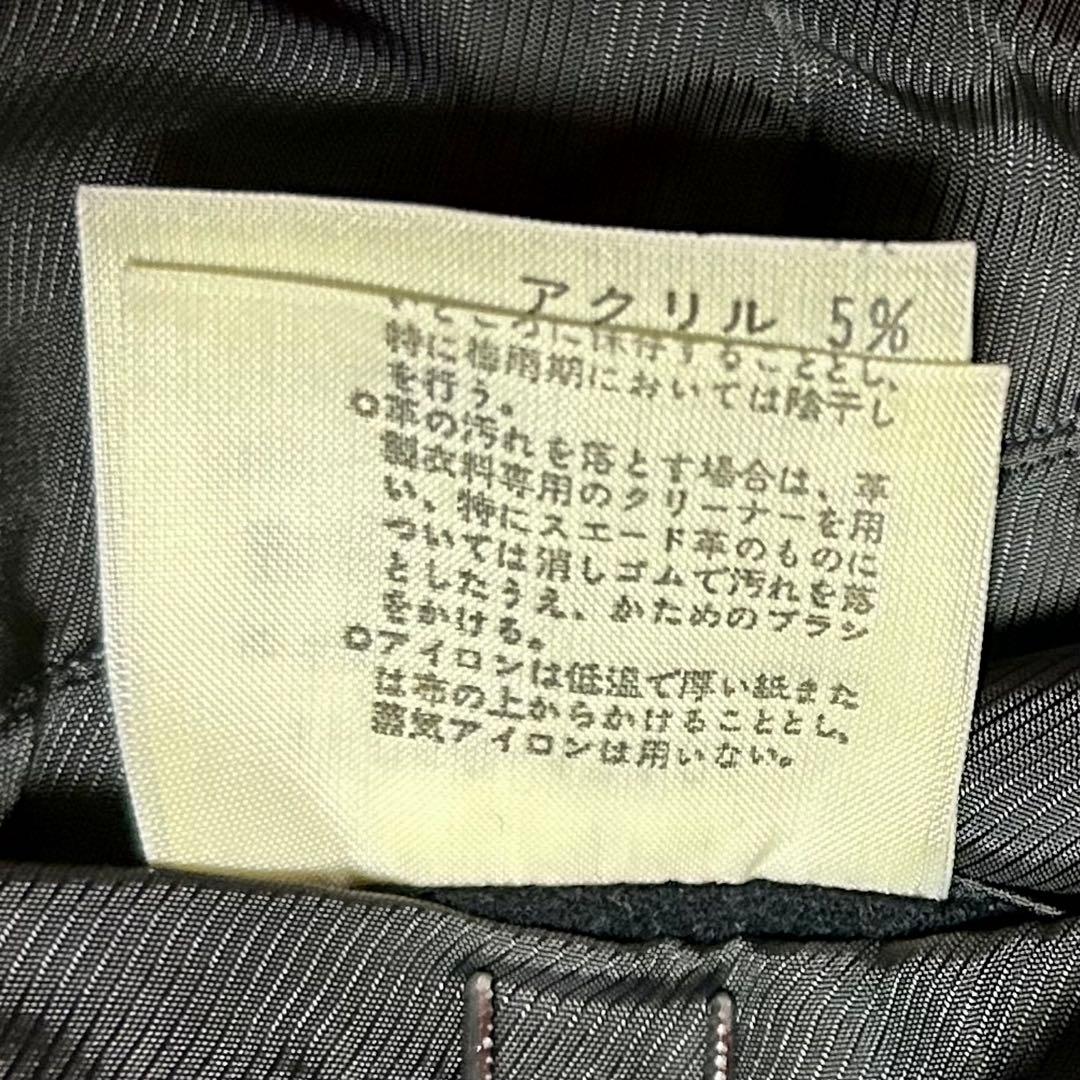 アクリル 5%
いところに保存することとし、
特に梅雨期においては陰干し
を行う。
✪革の汚れを落とす場合は、革
製衣料専用のクリーナーを用
い、特にスエード革のものに
ついては消しゴムで汚れを落
としたうえ、かためのブラシ
をかける。
✪アイロンは低温で厚い紙また
は布の上からかけることとし、
蒸気アイロンは用いない。